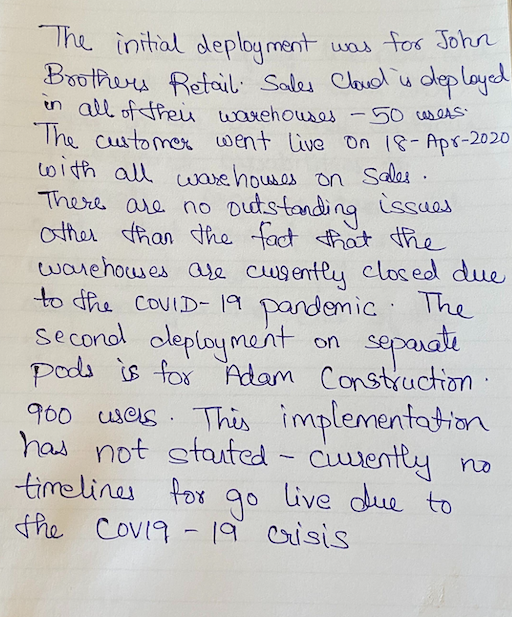 The initial deployment was for John
Brothers Retail. Sales Cloud is deployed
in all of their warehouses - 50 users.
The customer went live on 18-Apr-2020
with all warehouses on sales.
There are no outstanding issues
other than the fact that the
warehouses are currently closed due
to the COVID-19 pandemic. The
second deployment on separate
pods is for Adam Construction.
960 users. This implementation
has not started - currently no
timelines for go live due to
the COV19-19 crisis